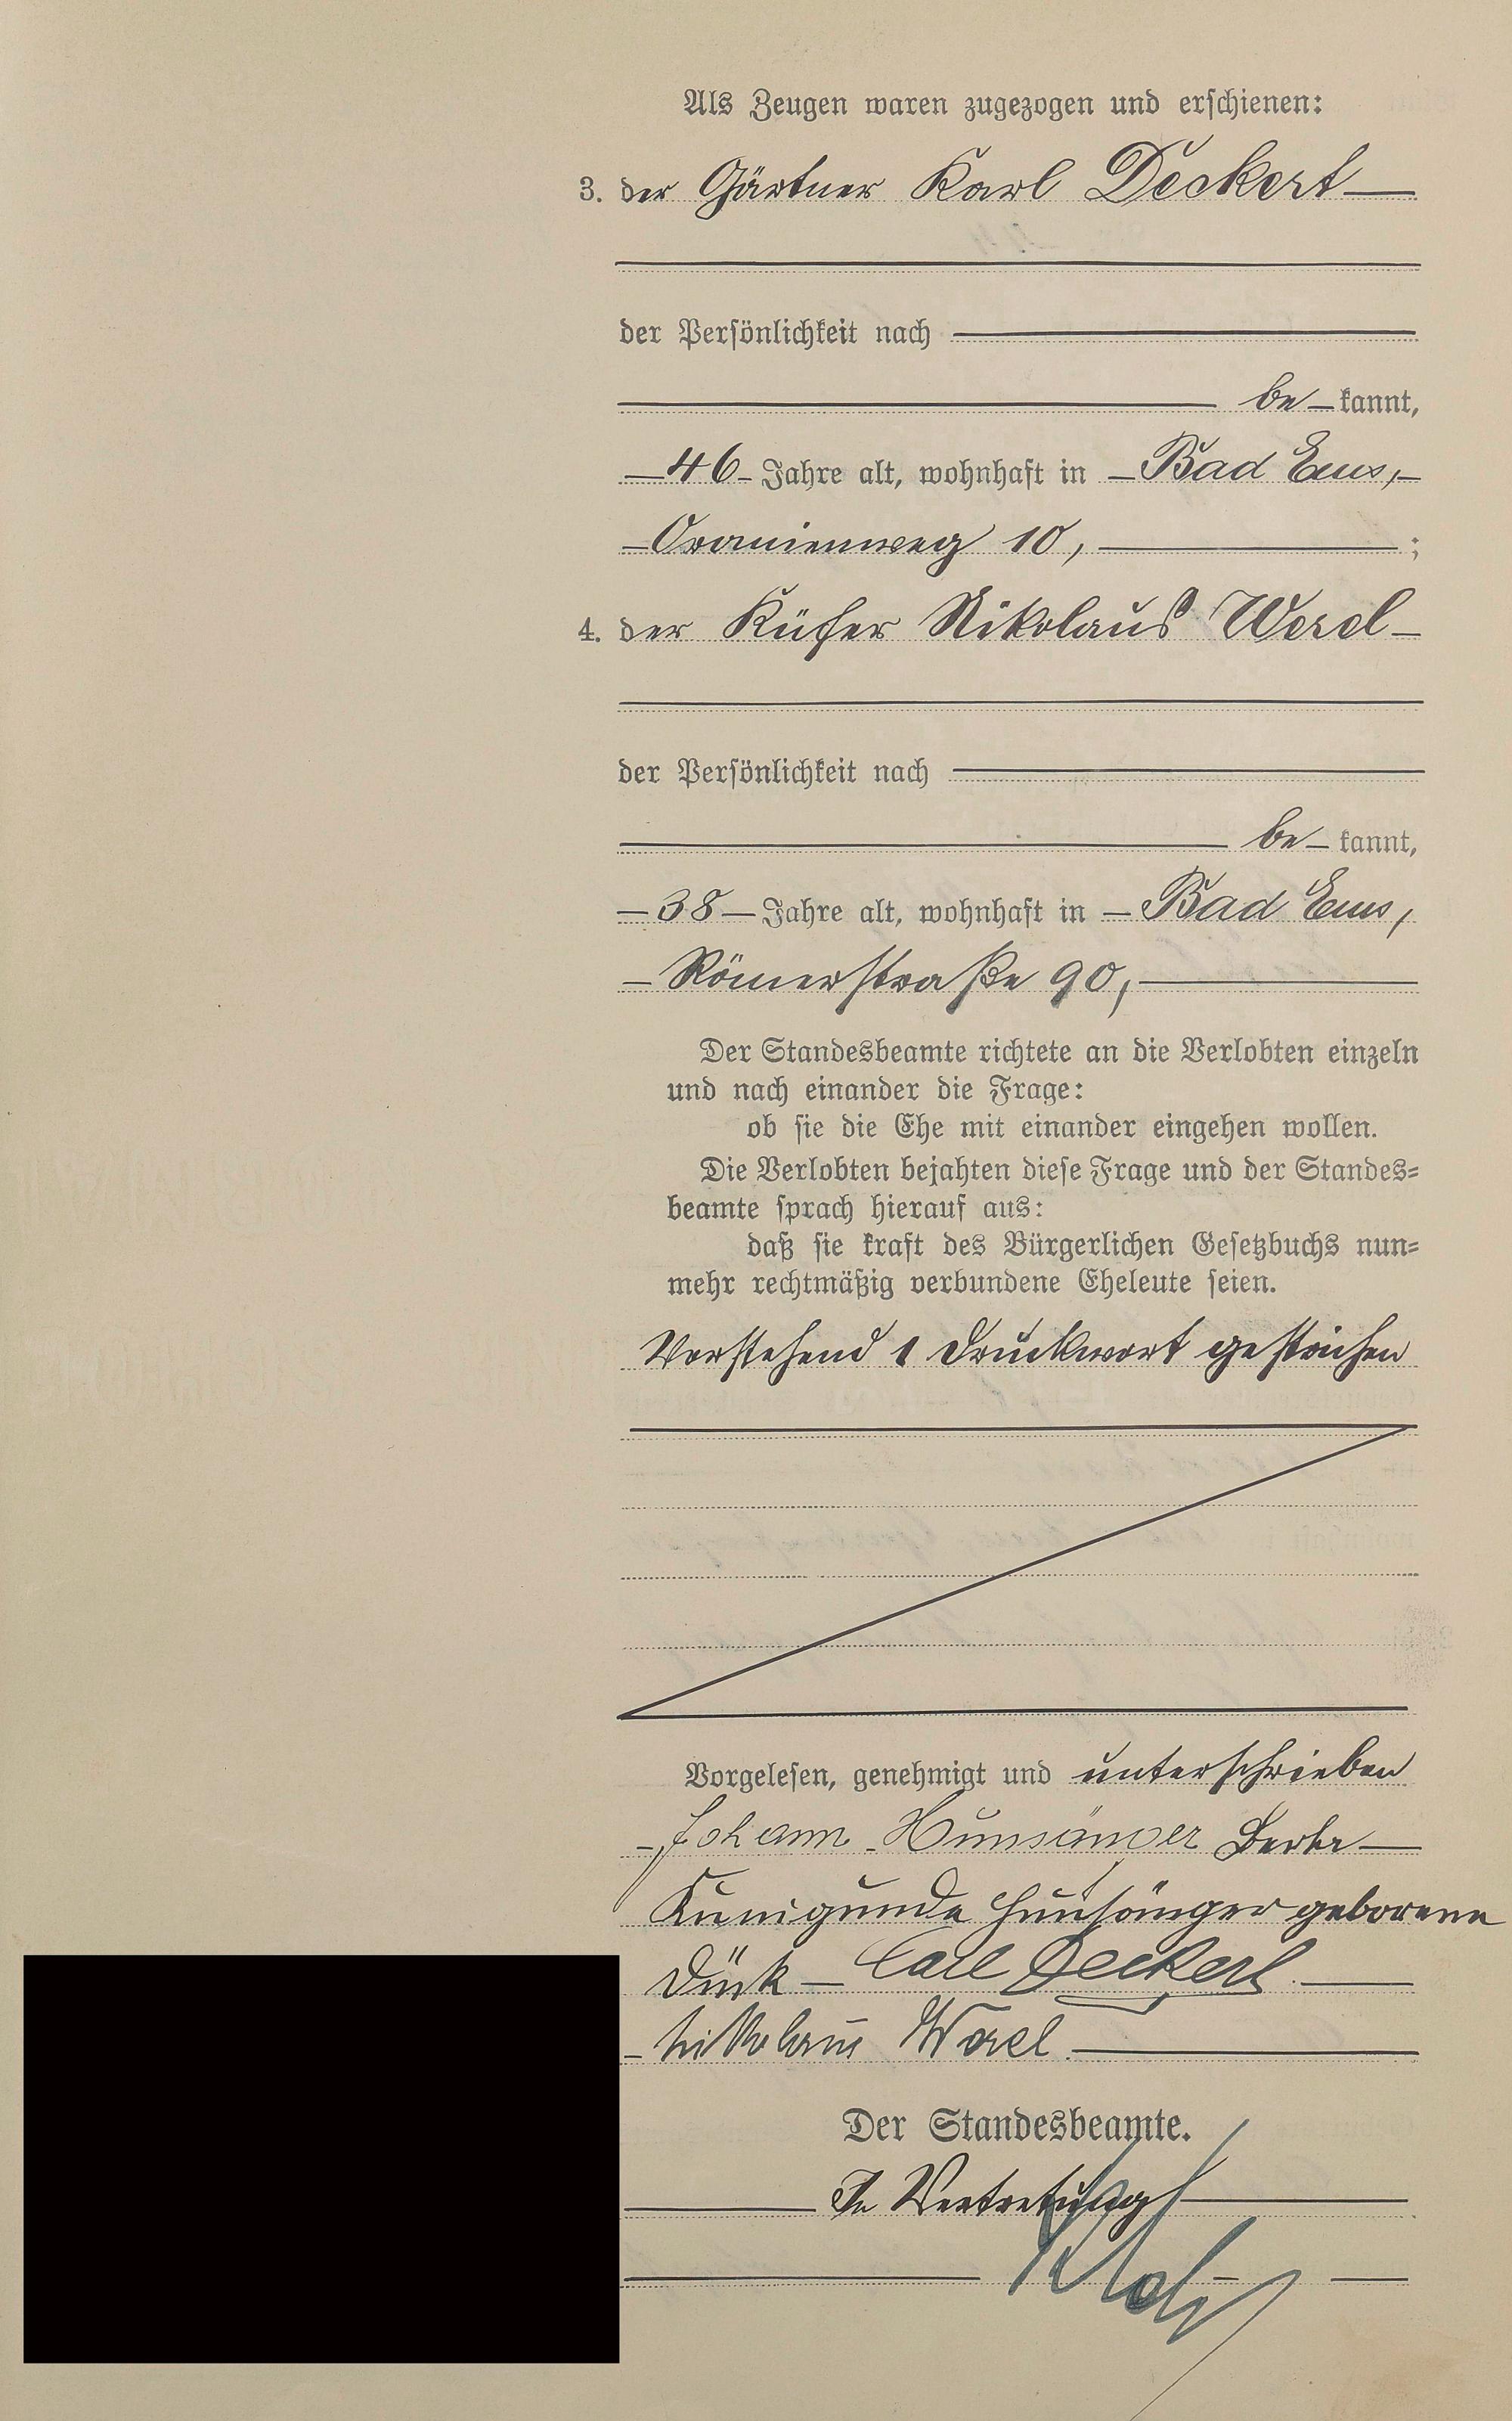 Als Zeugen waren zugezogen und erschienen:
3. der Gärtner Karl Deckert
der Persönlichkeit nach
be kannt,
46 Jahre alt, wohnhaft in Bad Ems,
Oranienweg 10, ;
4. der Küfer Nikolaus Werel
der Persönlichkeit nach
be kannt,
38 Jahre alt, wohnhaft in Bad Ems,
Römerstraße 90,
Der Standesbeamte richtete an die Verlobten einzeln
und nach einander die Frage:
ob sie die Ehe mit einander eingehen wollen.
Die Verlobten bejahten diese Frage und der Standes-
beamte sprach hierauf aus:
daß sie kraft des Bürgerlichen Gesetzbuchs nun-
mehr rechtmäßig verbundene Eheleute seien.
Vorstehend 1 Druckwort gestrichen
Vorgelesen, genehmigt und unterschrieben
Johann Hunsänger Berta
Kunigunda Hunsänger geborene
Dück Carl Deckert
Nikolaus Werel
Der Standesbeamte.
In Vertretung